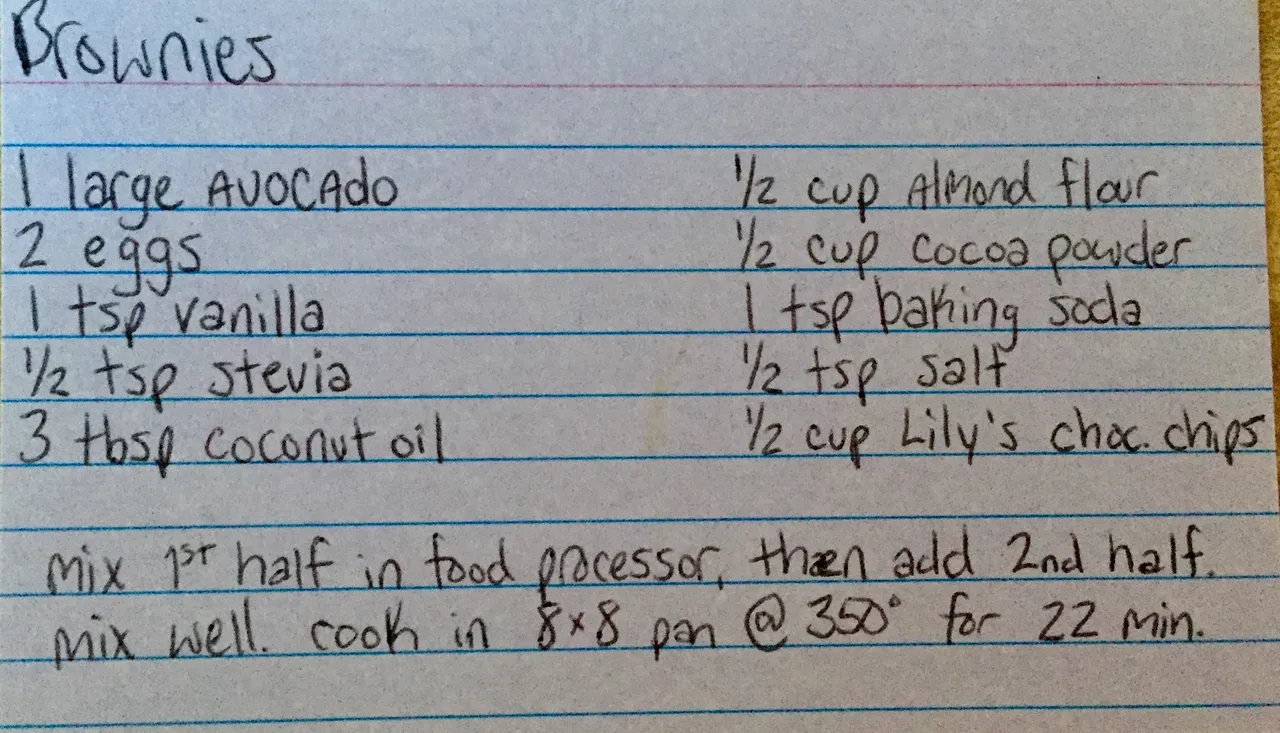 Brownies
1 large Avocado
2 eggs
1 tsp vanilla
1/2 tsp stevia
3 tbsp coconut oil
1/2 cup Almond flour
1/2 cup cocoa powder
1 tsp baking soda
1/2 tsp salt
1/2 cup Lily's choc. chips
mix 1st half in food processor, then add 2nd half.
mix well. cook in 8x8 pan @ 350° for 22 min.